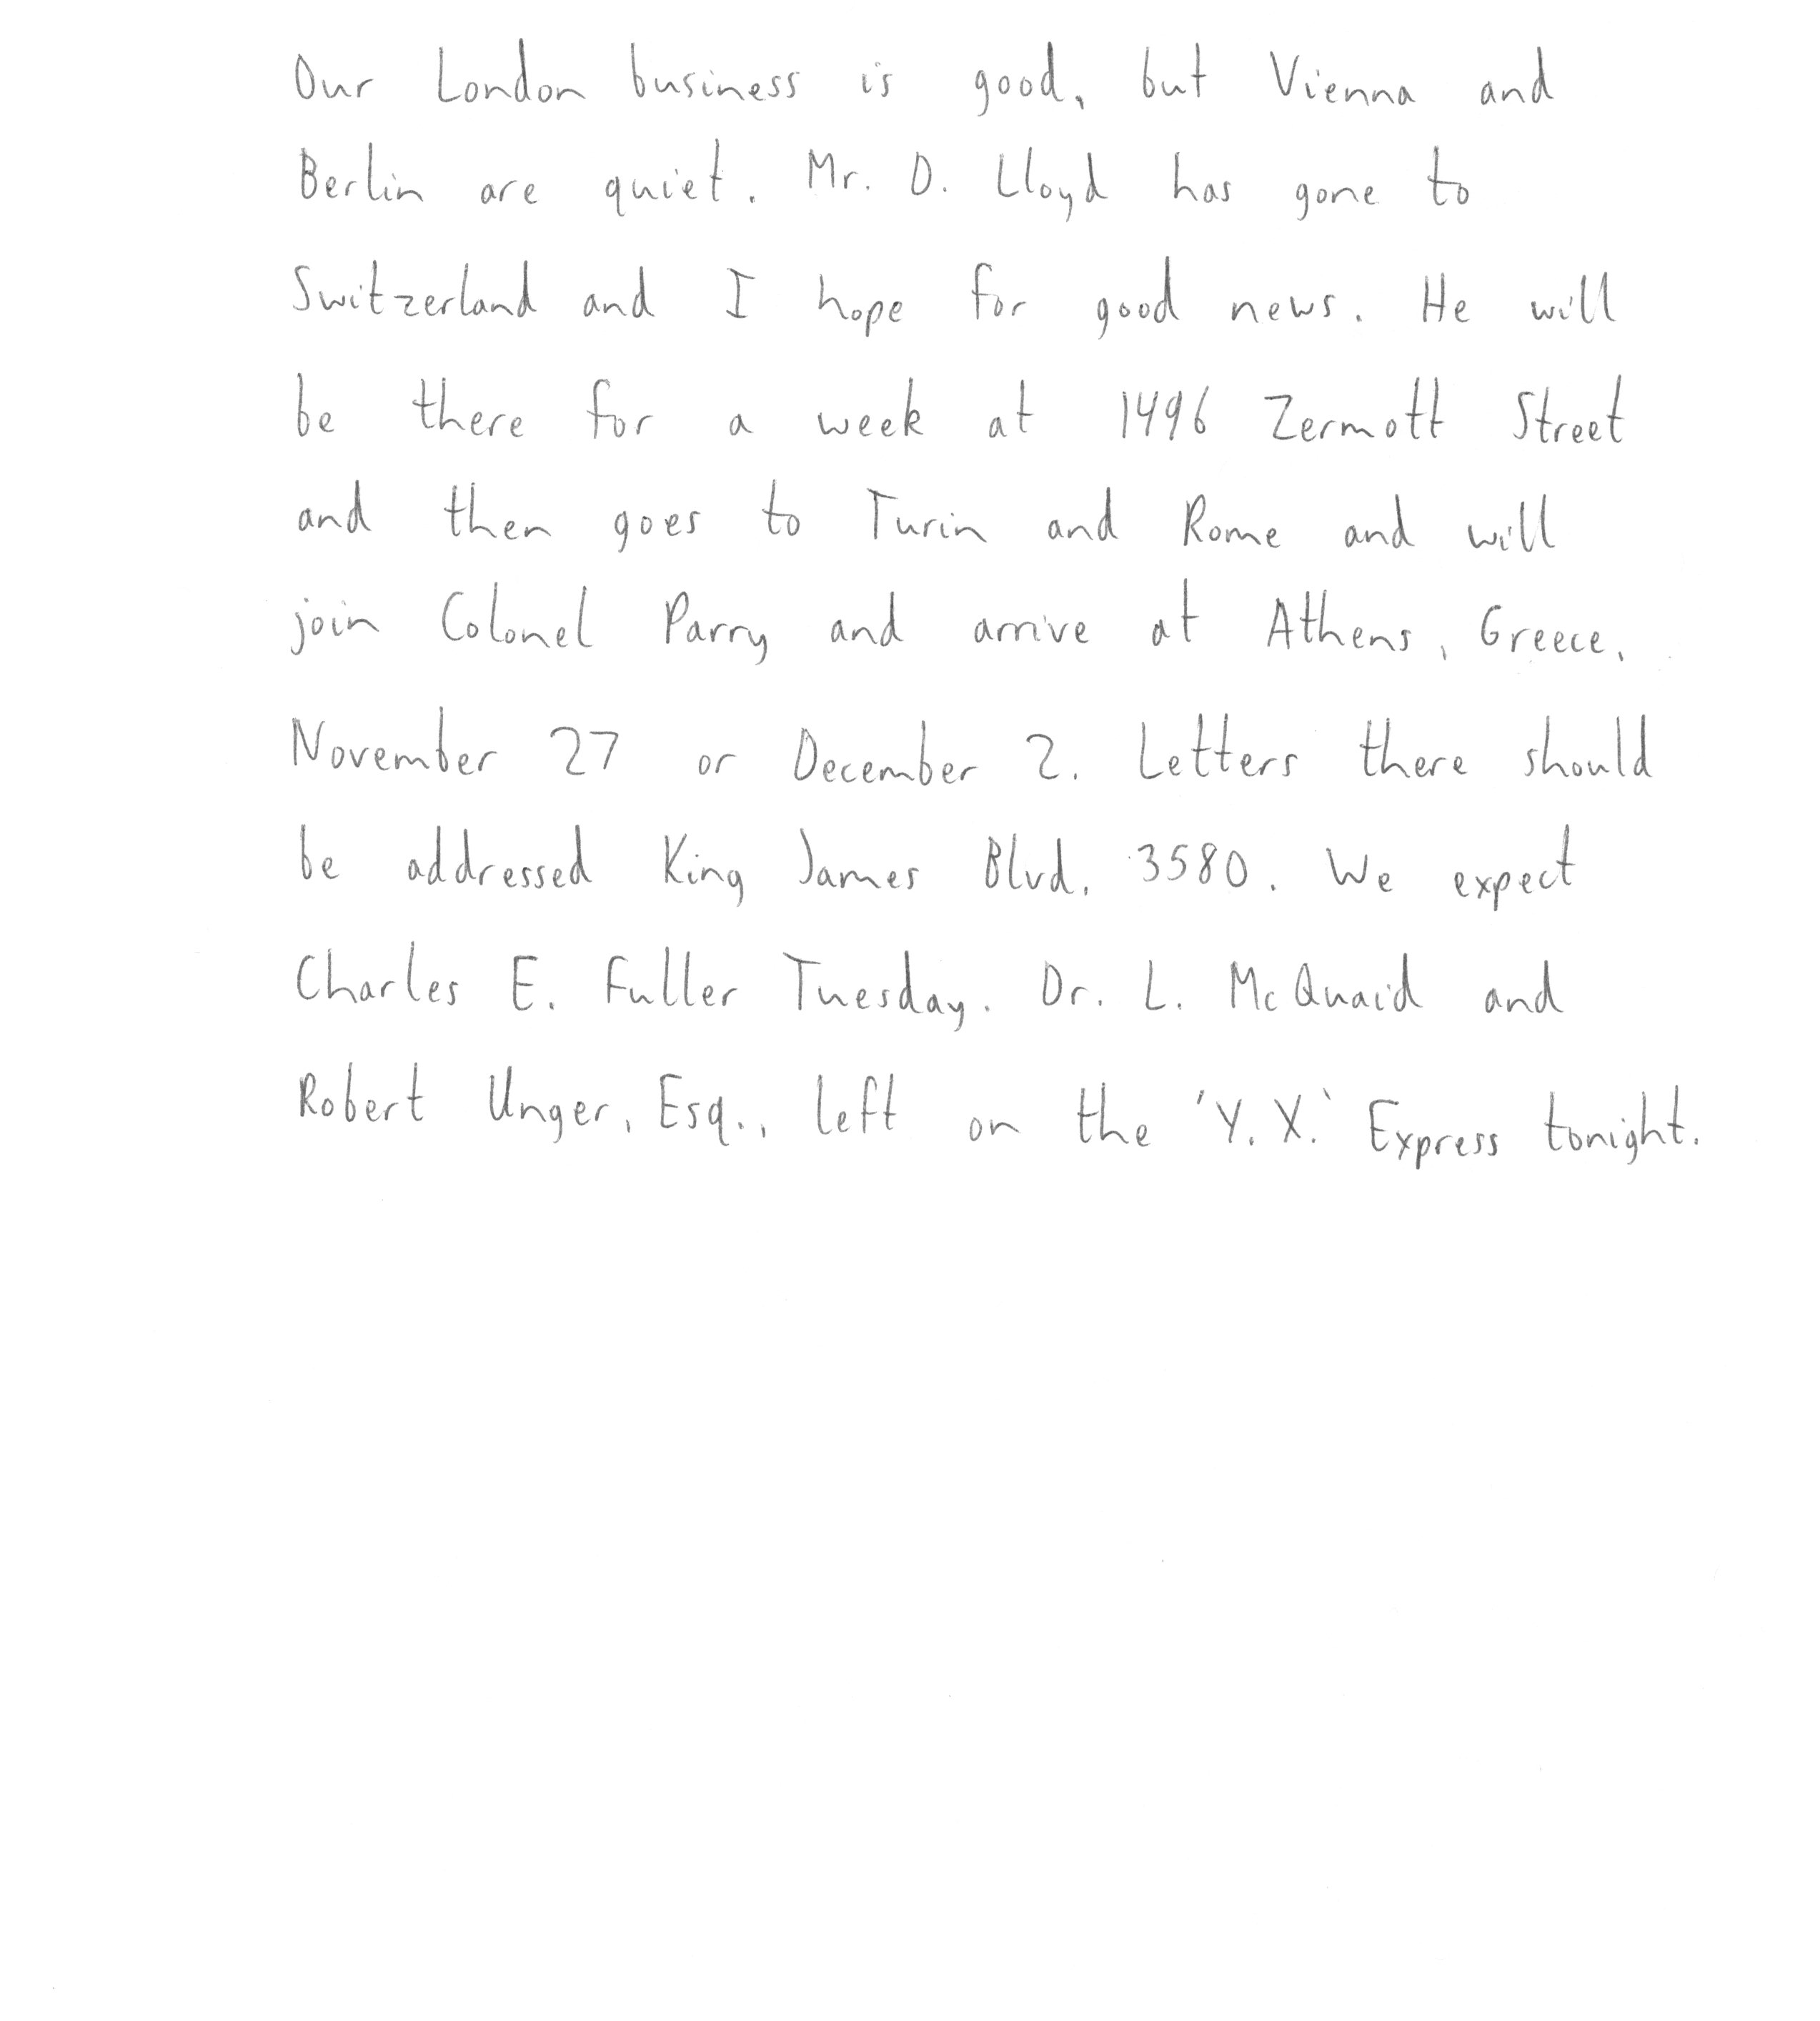 Our London business is good, but Vienna and
Berlin are quiet. Mr. D. Lloyd has gone to
Switzerland and I hope for good news. He will
be there for a week at 1496 Zermott Street
and then goes to Turin and Rome and will
join Colonel Parry and arrive at Athens, Greece,
November 27 or December 2. Letters there should
be addressed King James Blvd. 3580. We expect
Charles E. Fuller Tuesday. Dr. L. McQuaid and
Robert Unger, Esq., left on the 'Y. X.' Express tonight.